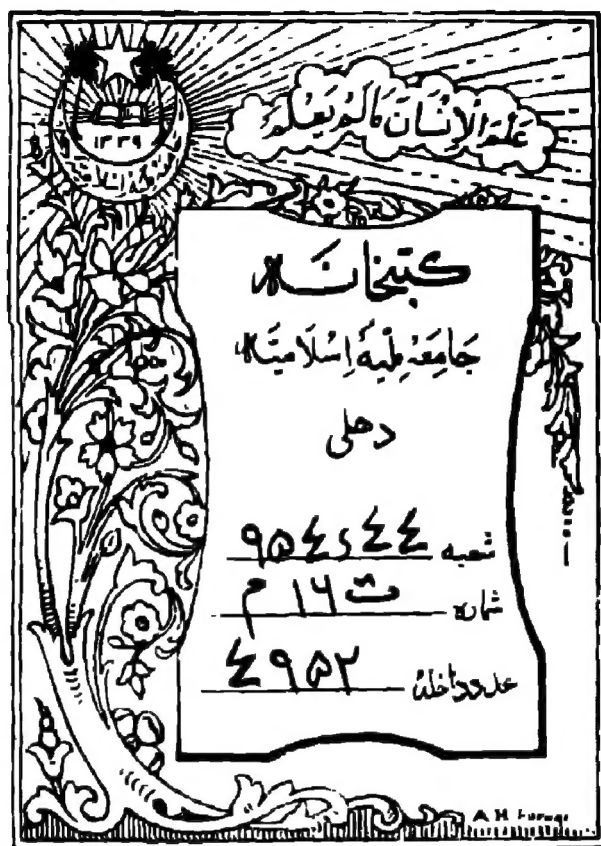 ۱۳۳۹
عَلَّمَ الْإِنْسَانَ مَا لَمْ يَعْلَمْ
کتبخانہ
جَامِعَہ مِلّیہ اِسْلَامیَہ
دھلی
شعبہ ۹۵۴۶۴۴
شمارہ ۱۶ث م
عدد داخلہ ۴۹۵۲
A H Faruqi